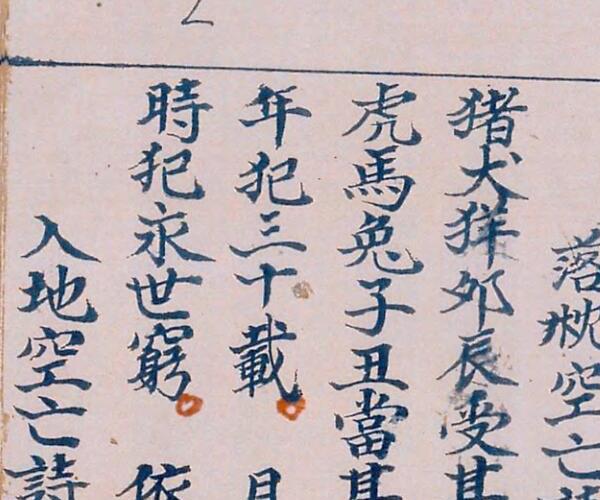 落枕空亡
猪犬羊卯辰受其
虎馬兔子丑當其
年犯三十載 月
時犯永世窮 依
入地空亡詩